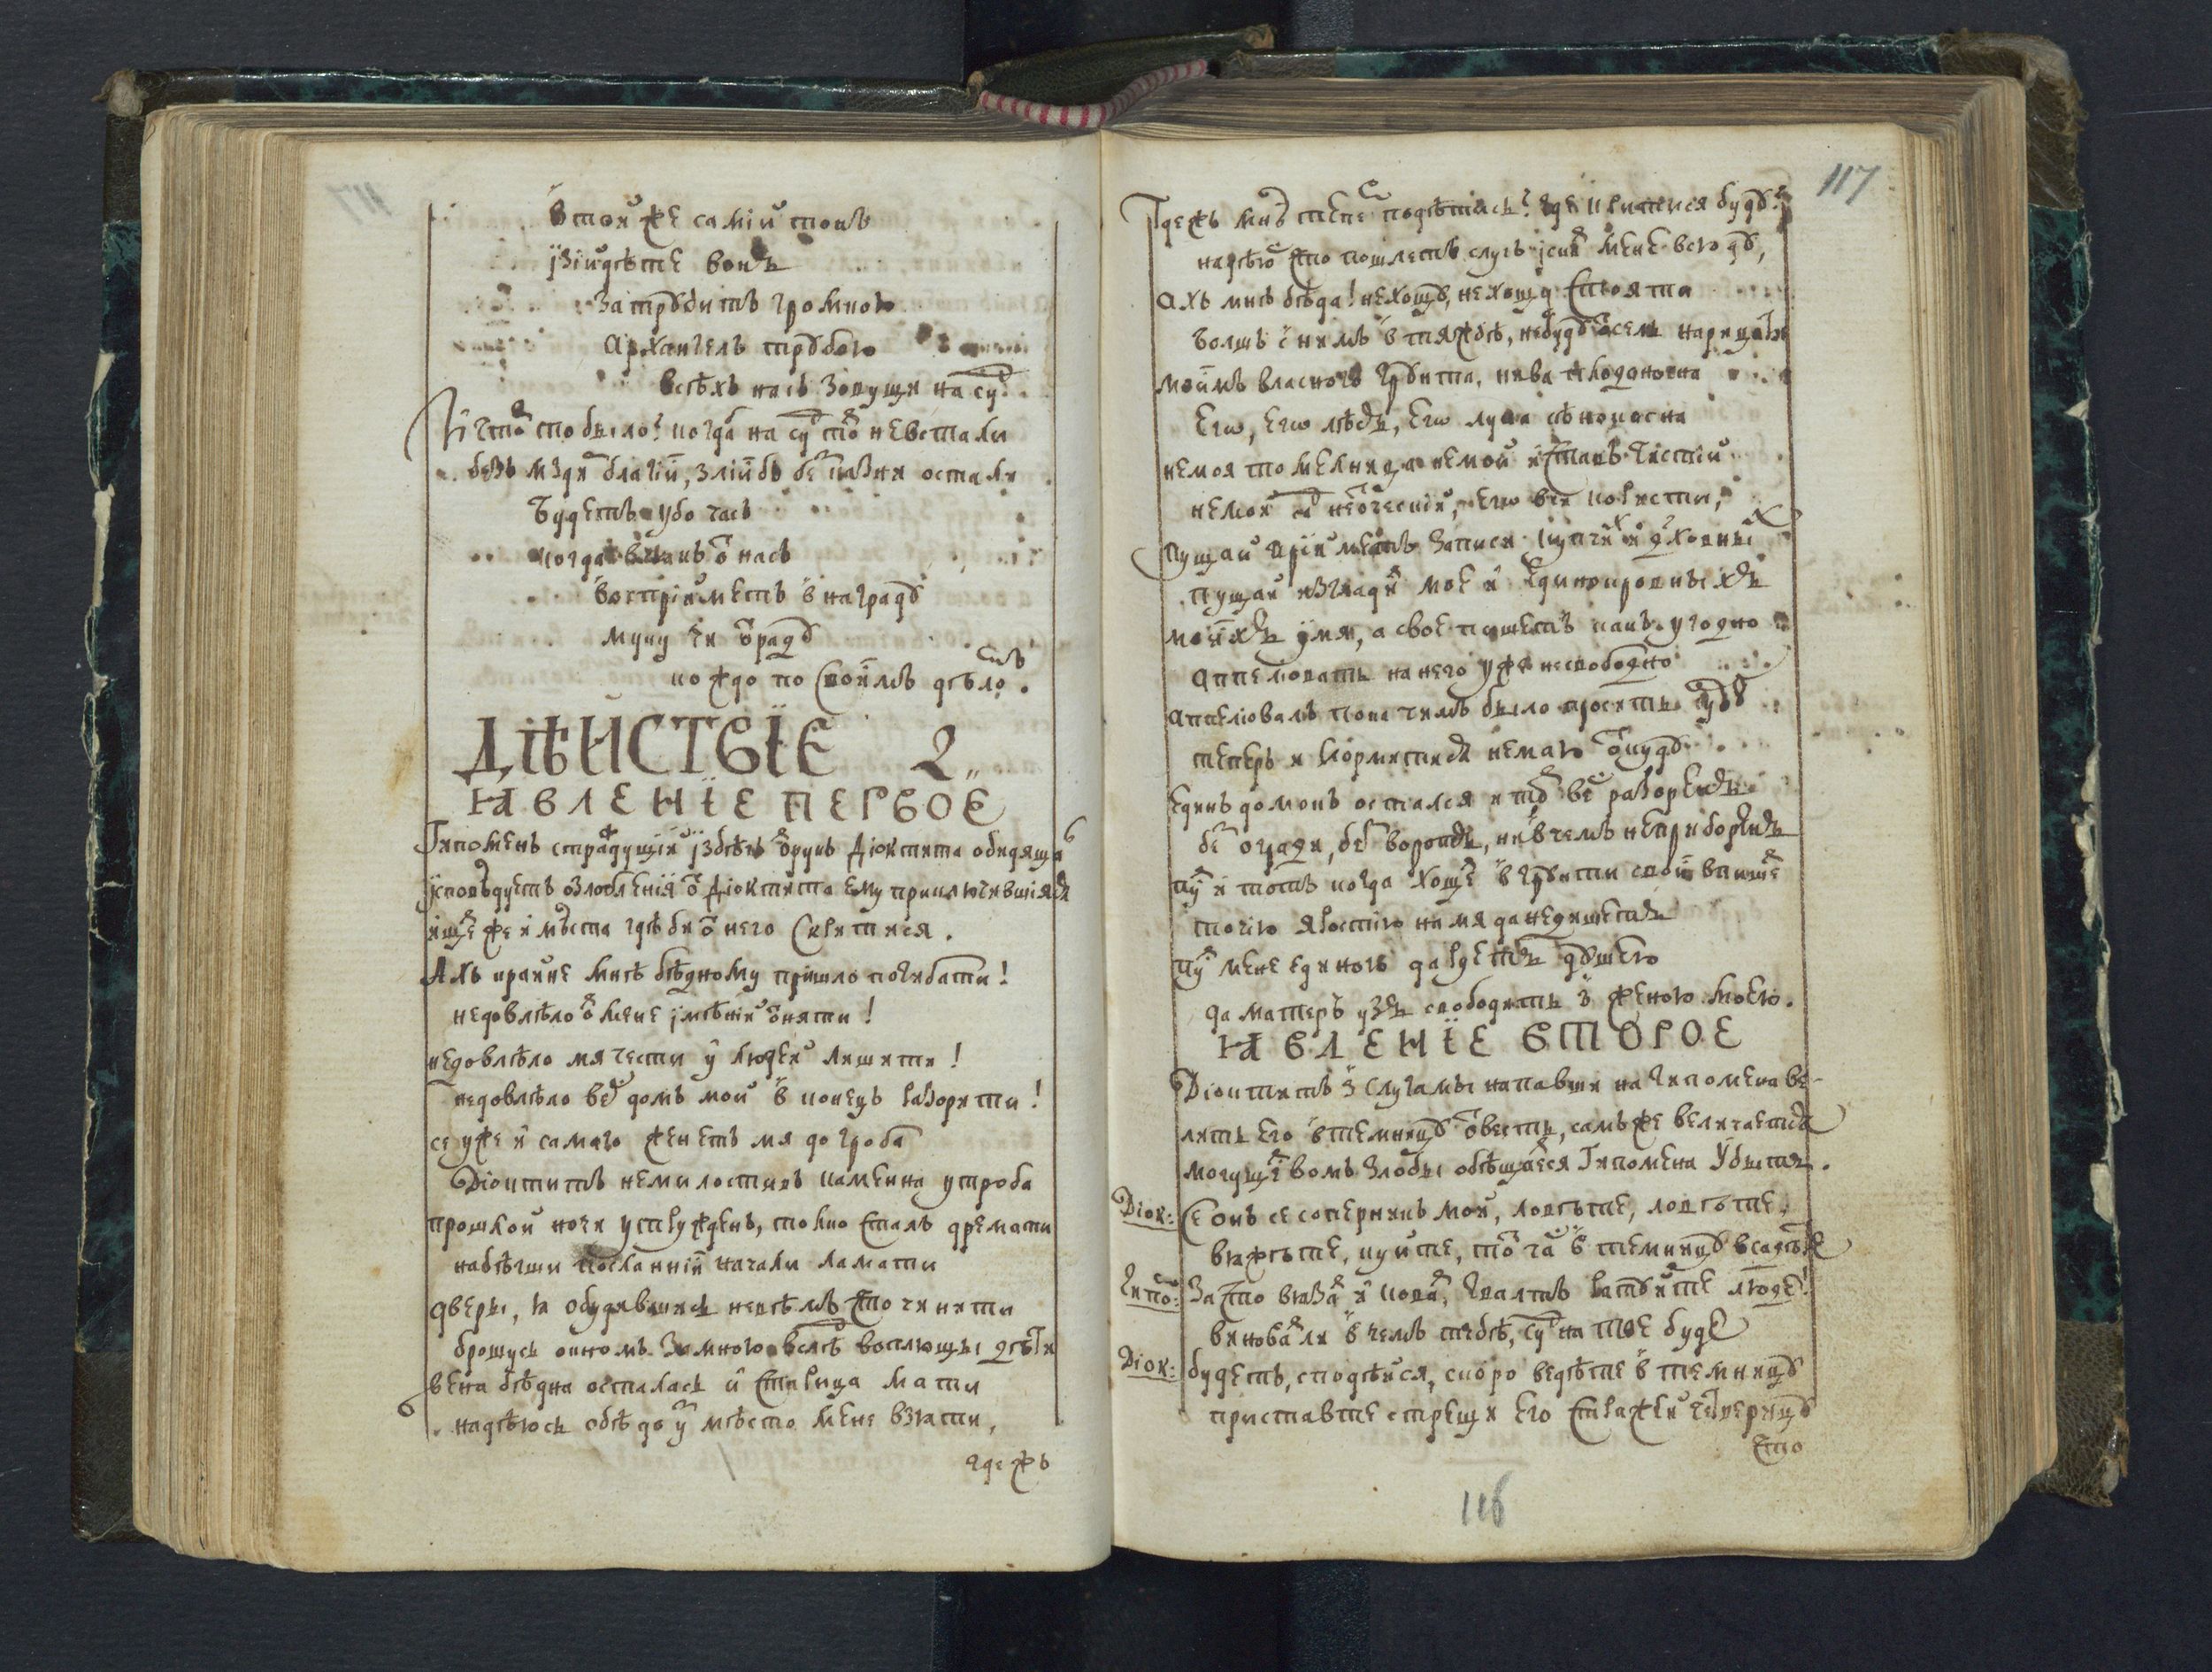 В той же самій топъ
ізійдѣте вонъ
Затрꙋбитъ громною
Архангелъ трꙋбою
всѣхъ насъ зовущи на суд.
И что то было? когда на суд то не встали
безъ мзди благій, зліи бъ без казни остали
Будетъ убо часъ
когда всякъ от насъ
воспрійметъ в наградꙋ
муку ли отрадꙋ
кождо по своимъ дѣломъ.
ДѢЙСТВЇЕ 2
ꙖВЛЕНЇЕ ПЕРВОЕ
Гипоменъ страждущій ізбѣгъ от рукъ Діоктита обидяща
ісповѣдуетъ озлобленія от Діоктита ему приключившіяся
ищет же и мѣста гдѣ би от него скритися.
Ахъ крайне мнѣ бѣдному прийшло погибати!
недовлѣло от мене імѣній отняти!
недовлѣло мя чести у людей лишити!
недовлѣло весь домъ мой в конецъ разорити!
се уже и самаго женетъ мя до гроба
Діоктитъ немилостивъ каменна утроба
прошлой ночи утружденъ, токмо сталъ дремати
набѣгши посланнїи начали ламати
двери, я обудившись невѣмъ что чинити
брошусь окномъ за мною вслѣдъ воплющы дѣти
жена бѣдна осталась и старица мати
надѣюсь обѣ до уз мѣсто мене взяти,
гдежъ
117
Гдежъ мнѣ теперь подѣтись? где критися будꙋ?
надѣюсь что пошлетъ слугъ іскат мене всюдꙋ,
Ахъ мнѣ бѣда! нехощꙋ, нехощꙋ стояти
болшъ с нимъ в тяжбѣ, небудꙋ осемъ нарицати
моимъ власногъ грꙋнта, нива плодоносна
Его, его лѣсъ, его лука сѣнокосна
немоя то мелница немой и ставъ чистий
немой сад неотческий, его вся користи,
пущай прийметъ записи купчих и духовных
пущай изгладит мое и единокровныхъ
моихъ имя, а свое пишетъ какъ угодно
аппеловать на него уже несвободно
аппеловалъ пока чимъ было просить судꙋ
теперъ и кормитися немаю откудꙋ
единъ домокъ остался и тот весь разоренъ
без огради, без воротъ, ни в чемъ неприборенъ
пуст и тотъ когда хощет в грꙋнти свои впишет
точію яростію на мя да недишетъ
пуст мене единогъ да будетъ дꙋшею
да матеръ узъ свободитъ з женою моею.
ꙖВЛЕНЇЕ ВТОРОЕ
Діоктитъ з слугамы напавши на Гипомена ве-
литъ его в темницꙋ отвесть, самъ же величается
могуществомъ злобы обѣщаяся Гипомена убыть.
Діок: Се онъ се соперникъ мой, ловѣте, ловѣте,
вяжѣте, куйте, тот час в темницꙋ всадѣте
Гипо: За что вязат и коват, квалтъ ратꙋйте людей!
виноват ли в чемъ тебѣ, суд на тое будет
Діок: будетъ, сподѣйся, скоро ведѣте в темницꙋ
приставте стрещи его стражей четверицꙋ
Что
116